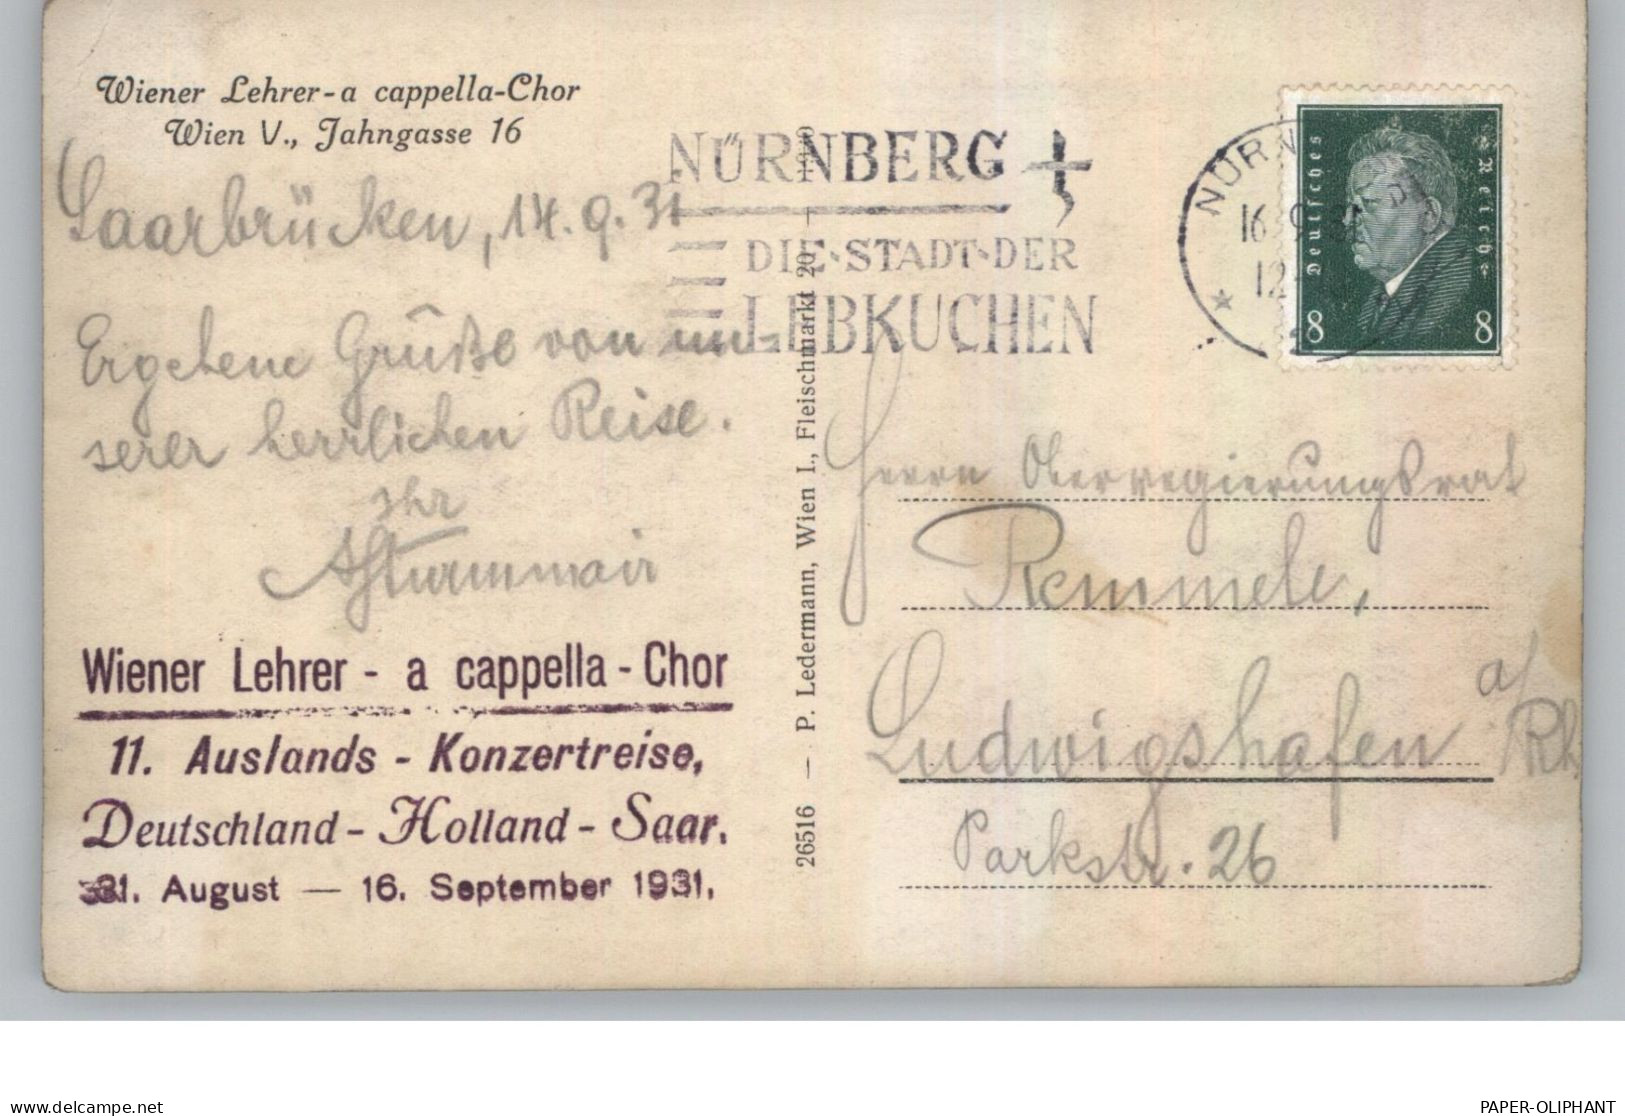 Wiener Lehrer-a cappella-Chor
Wien V., Jahngasse 16
Saarbrücken, 14.9.31
Ergebene Grüße von un-
serer herrlichen Reise.
Ihr
Wiener Lehrer - a cappella - Chor
11. Auslands - Konzertreise,
Deutschland - Holland - Saar.
31. August — 16. September 1931.
26516 — P. Ledermann, Wien I., Fleischmarkt 20 —
NÜRNBERG
DIE·STADT·DER
LEBKUCHEN
Deutsches Reich
8 8
Herrn Oberregierungsrat
Remmele,
Ludwigshafen a/Rh.
Parkstr. 26
delcampe.net
PAPER-OLIPHANT